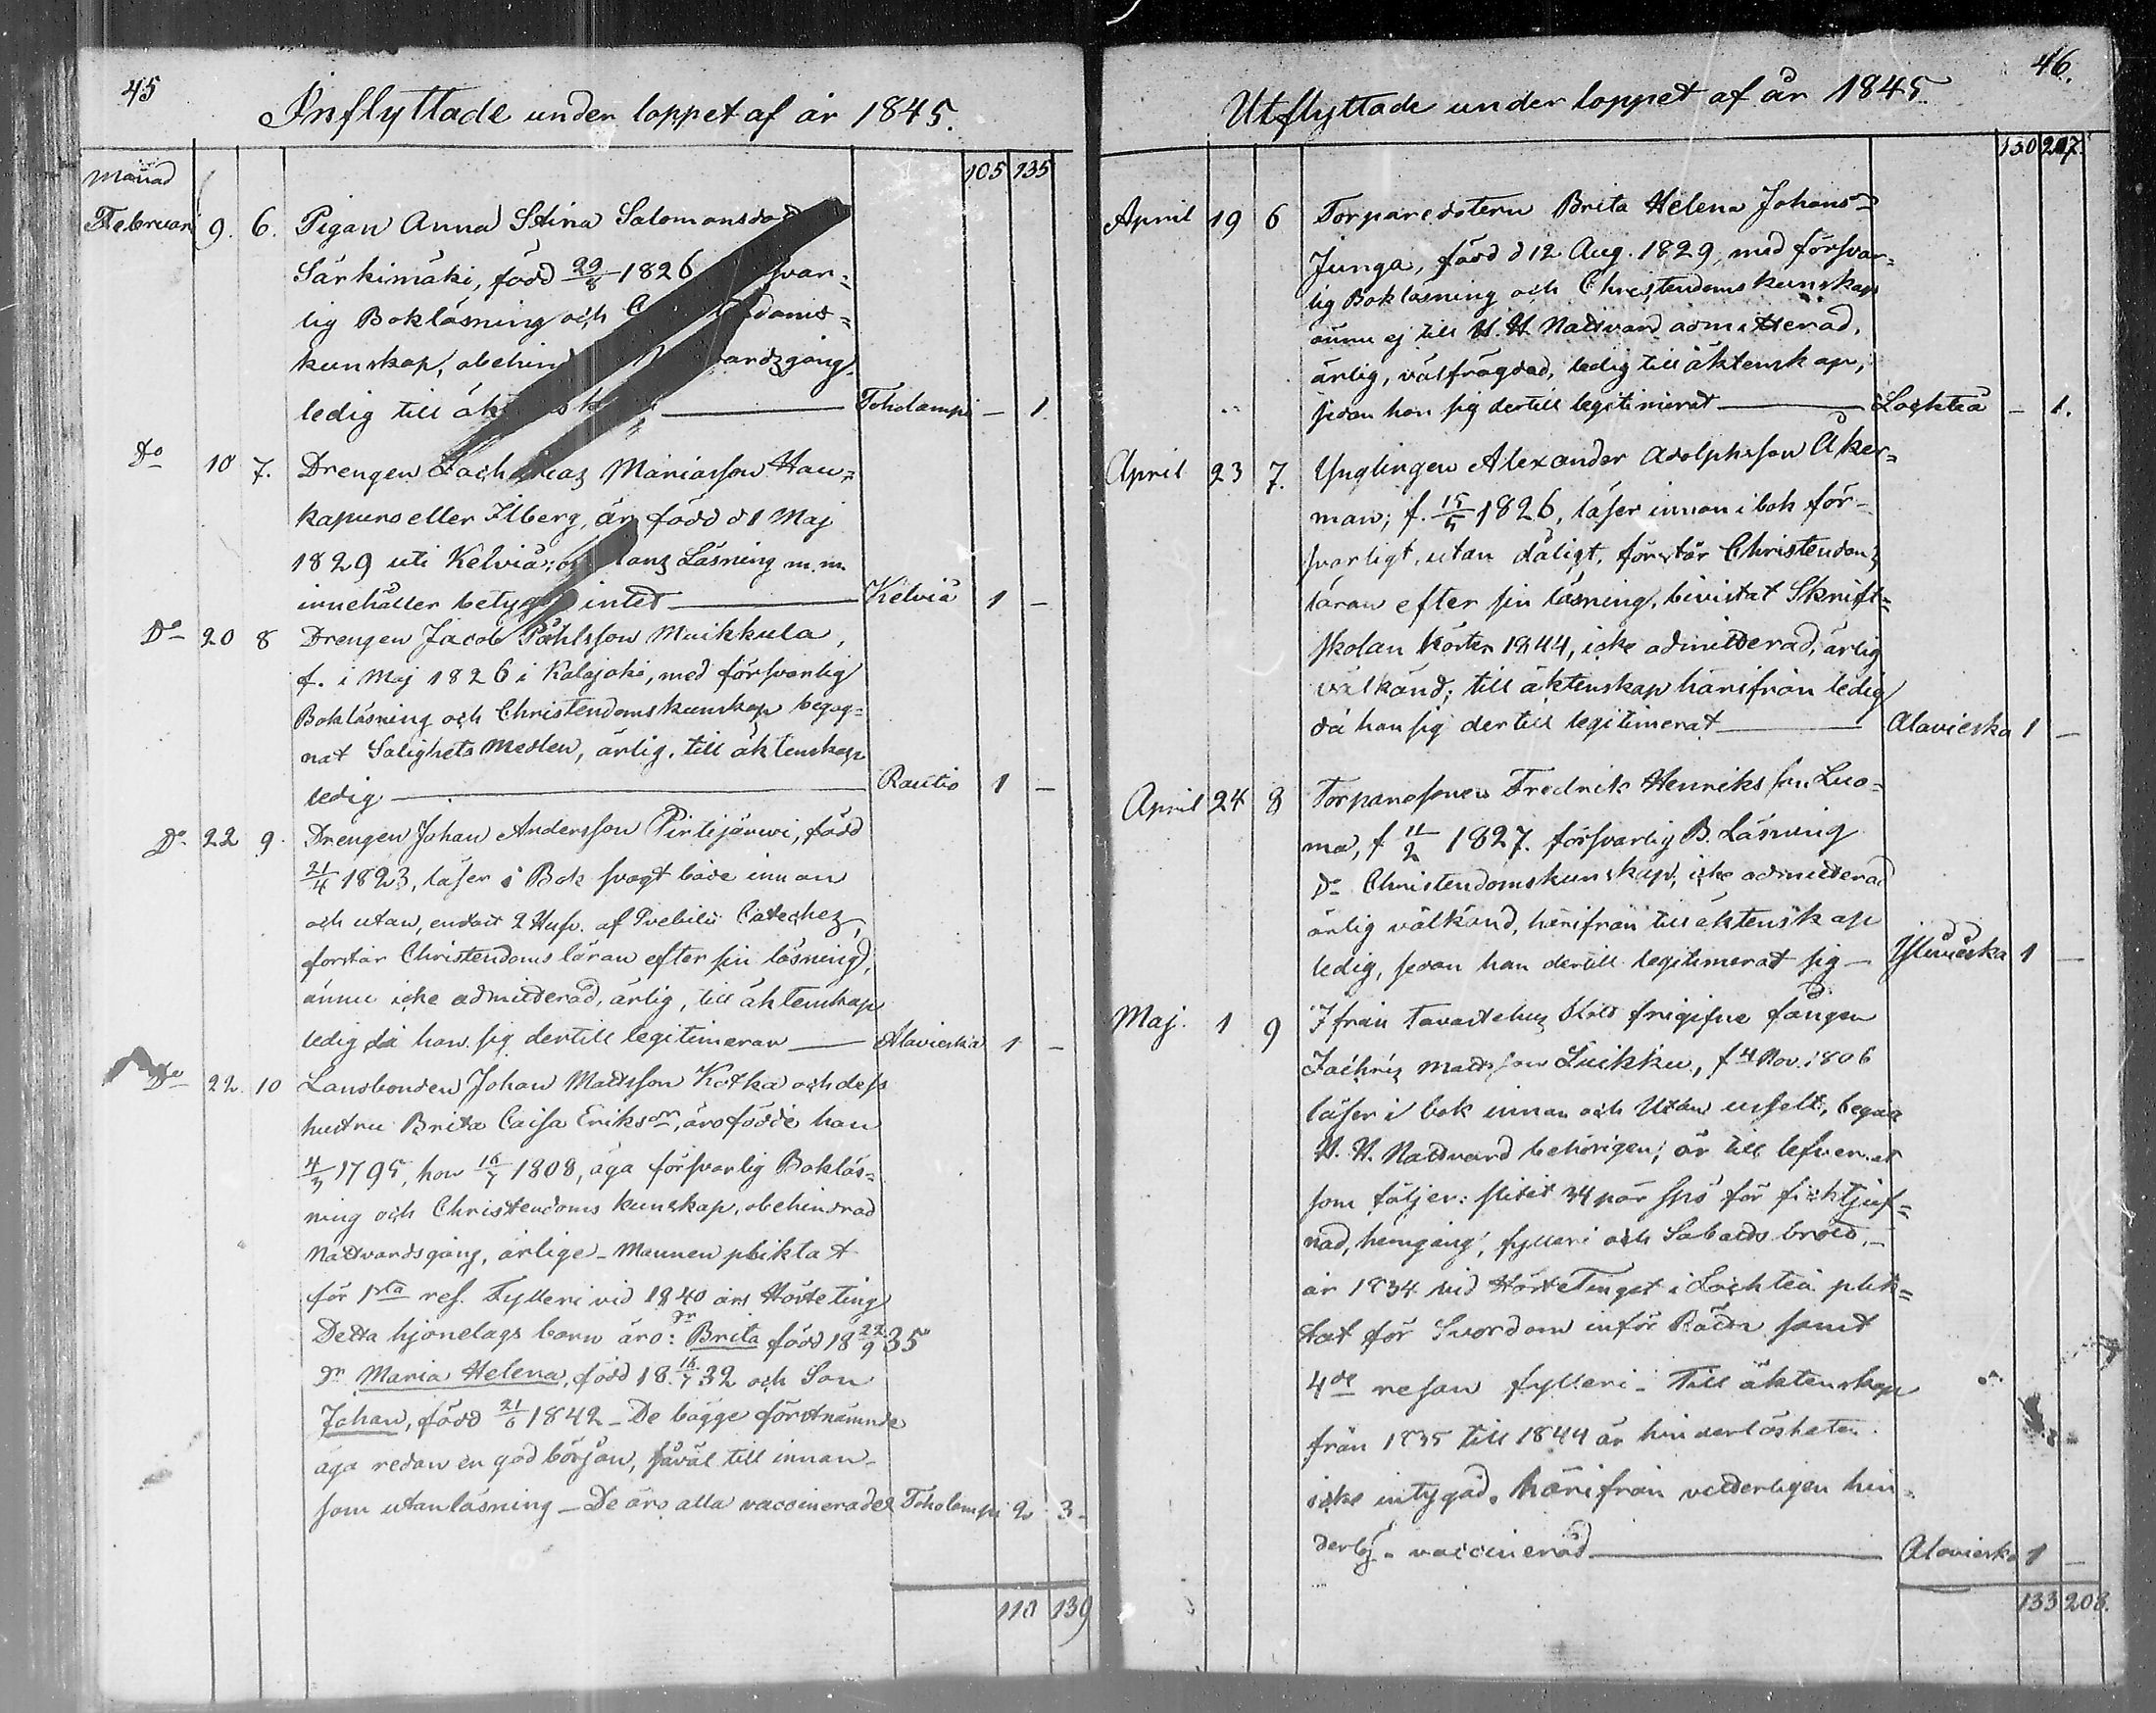 45
Inflyttade under loppet af år 1845.
105 135
Månad
Februari 9. 6. Pigan Anna Stina Salomonsdod
Särkimäki, född 29/8 1826 svar-
lig Bokläsning och
kunskap, obehin ardsgång
ledig till äk Toholampi — 1.
Do 10 7. Drengen Zachrias Mariasson Hau-
kapuro eller Ilberg, är född d 1 Maj
1829 uti Kelviå; Läsning m. m.
innehåller betyget intet — Kelviå 1 —
Do 20 8 Drengen Jacob Påhlsson Muikkula,
f. i Maj 1826 i Kalajoki, med försvarlig
Bokläsning och Christendomskunskap begag-
nat Salighets Medlen, ärlig, till äktenskap
ledig — Rautio 1 —
Do 22 9. Drengen Johan Andersson Pirtijärwi, född
21/4 1823, läser i Bok svagt både innan
och utan, endast 2 Hufv. af Svebilii Cateches,
förstår Christendoms läran efter sin läsning,
ännu icke admitterad, ärlig, till äktenskap
ledig då han sig dertill legitimerar — Alavieska 1 —
Do 22. 10 Landbonden Johan Mattsson Kotka och dess
hustru Brita Caisa Eriksdr, äro födde han
4/3 1795, hon 16/7 1808, äga försvarlig Bokläs-
ning och Christendoms kunskap, obehindrad
Nattvardsgång, ärlige — Mannen pliktat
för 1sta res. Fylleri vid 1840 års Hösteting
Detta hjonelags barn äro: dr Brita född 18 22/9 35
dr Maria Helena, född 18 16/7 32 och Son
Johan, född 21/6 1842 — De bägge förstnämnde
äga redan en god början, såväl till innan-
som utanläsning — De äro alla vaccinerade Toholampi 2 3 —
110 139
46.
Utflyttade under loppet af år 1845.
130 207.
April 19 6 Torparedotern Brita Helena Johansdr
Junga, född d 12 Aug. 1829, med försvar-
lig Bokläsning och Christendomskunskap
ännu ej till H. H. Nattvard admitterad,
ärlig, välfrägdad, ledig till äktenskap,
sedan hon sig dertill legitimerat — Lochteå — 1.
April 23 7. Ynglingen Alexander Adolphsson Åker-
man; f. 15/5 1826, läser innan i bok för-
svarligt, utan dåligt, förstår Christendoms
läran efter sin läsning, bivistat Skrift-
skolan hösten 1844, icke admitterad, ärlig
välkänd; till äktenskap härifrån ledig
då han sig dertill legitimerat — Alavieska 1 —
April 24 8 Torparesonen Fredrik Henriksson Luo-
ma, f 11/2 1827. försvarlig B. Läsning
Do Christendomskunskap, icke admitterad
ärlig välkänd, härifrån till äktenskap
ledig, sedan han dertill legitimerat sig — Ylivieska 1 —
Maj. 1 9 Ifrån Tavastehus Slott frigifne fången
Zachris Mattsson Luikku, f 4 Nov. 1806
läser i bok innan och Utan uselt, begått
H. H. Nattvard behörigen; är till lefvernet
som följer: slitet 34 par spö för ficktjuf-
nad, hemgång, fylleri och Sabatsbrott,—
år 1834 vid HösteTinget i Lochteå plik-
tat för Svordom inför Rätta samt
4de resan fylleri — Till äktenskap
från 1835 till 1844 är hinderlösheten
icke intygad. Härifrån vetterligen hin-
derlös. vaccinerad — Alavieska 1 —
133 208.